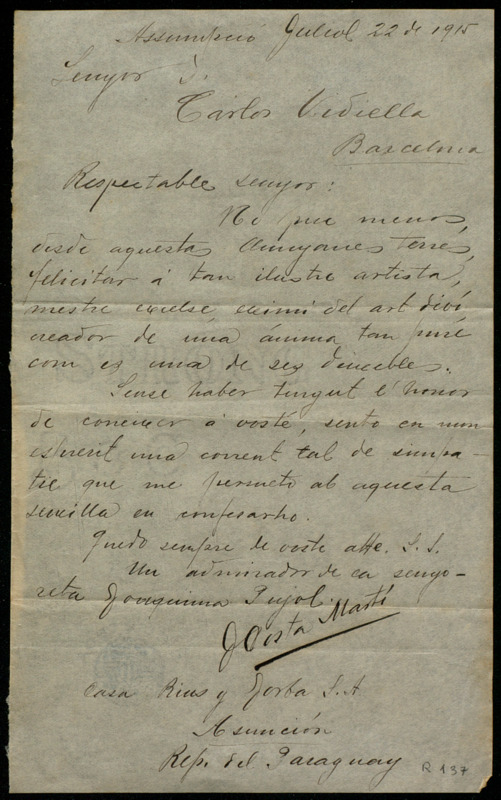 Assumbció Juliol 22 de 1915
Senyor D.
Carlos Vidiella
Barcelona
Respectable senyor:
No puc menos,
desde aquestas llunyanes terres,
felicitar á tan ilustre artista,
mestre excelse, eximi del art diví,
creador de una ánima tan pure
com es una de ses dexebles.
Sense haber tingut l'honor
de coneixer á vosté, sento en mon
esperit una corrent tal de simpa-
tie que me permeto ab aquesta
sencilla en confesarho.
Quedo sempre de vosté atte. S. S.
Un admirador de ca senyo-
reta Joaquima Pujol.
J Costa Martí
Casa Rius y Jorba S. A
Asunción
Rep. del Paraguay
R 137